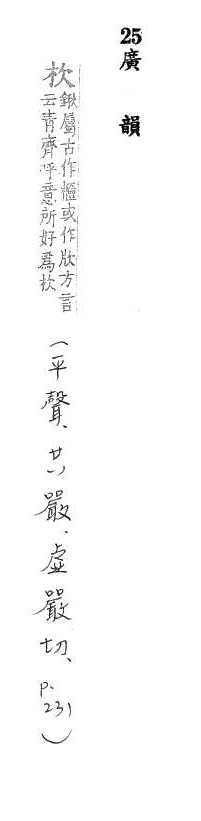 25廣韻
杴
鍬屬古作或作方言
云青齊呼意所好爲杴
(平聲、廿八嚴、虛嚴切、p.231)